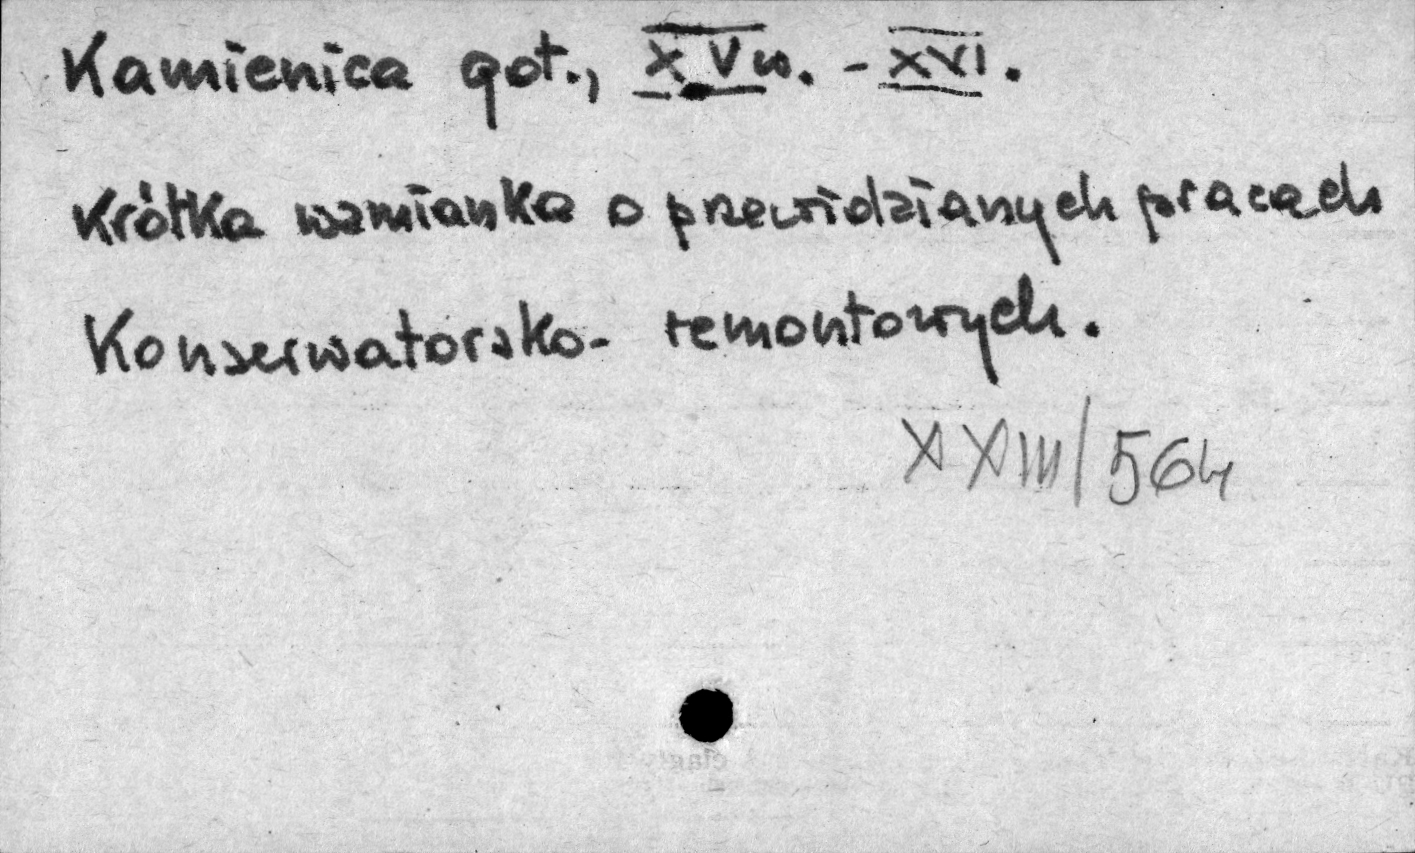 Kamienica got., XVw. - XVI.
Krótka wzmianka o przewidzianych pracach
Konserwatorsko- remontowych.
XXIII/564